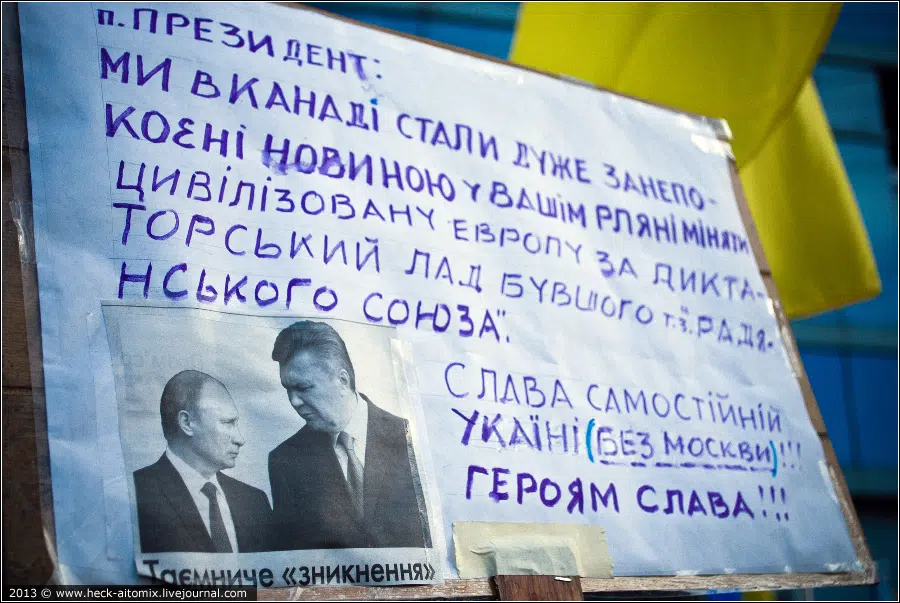 п. ПРЕЗИДЕНТ:
МИ В КАНАДІ СТАЛИ ДУЖЕ ЗАНЕПО-
КОЄНІ НОВИНОЮ У ВАШІМ РЛЯНІ МІНЯТИ
ЦИВІЛІЗОВАНУ ЕВРОПУ ЗА ДИКТА-
ТОРСЬКИЙ ЛАД БУВШОГО т.з. „РАДЯ-
НСЬКОГО СОЮЗА".
СЛАВА САМОСТІЙНІЙ
УКАЇНІ (БЕЗ МОСКВИ)!!!
ГЕРОЯМ СЛАВА!!!
Таємниче «зникнення»
2013 © www.heck-aitomix.livejournal.com